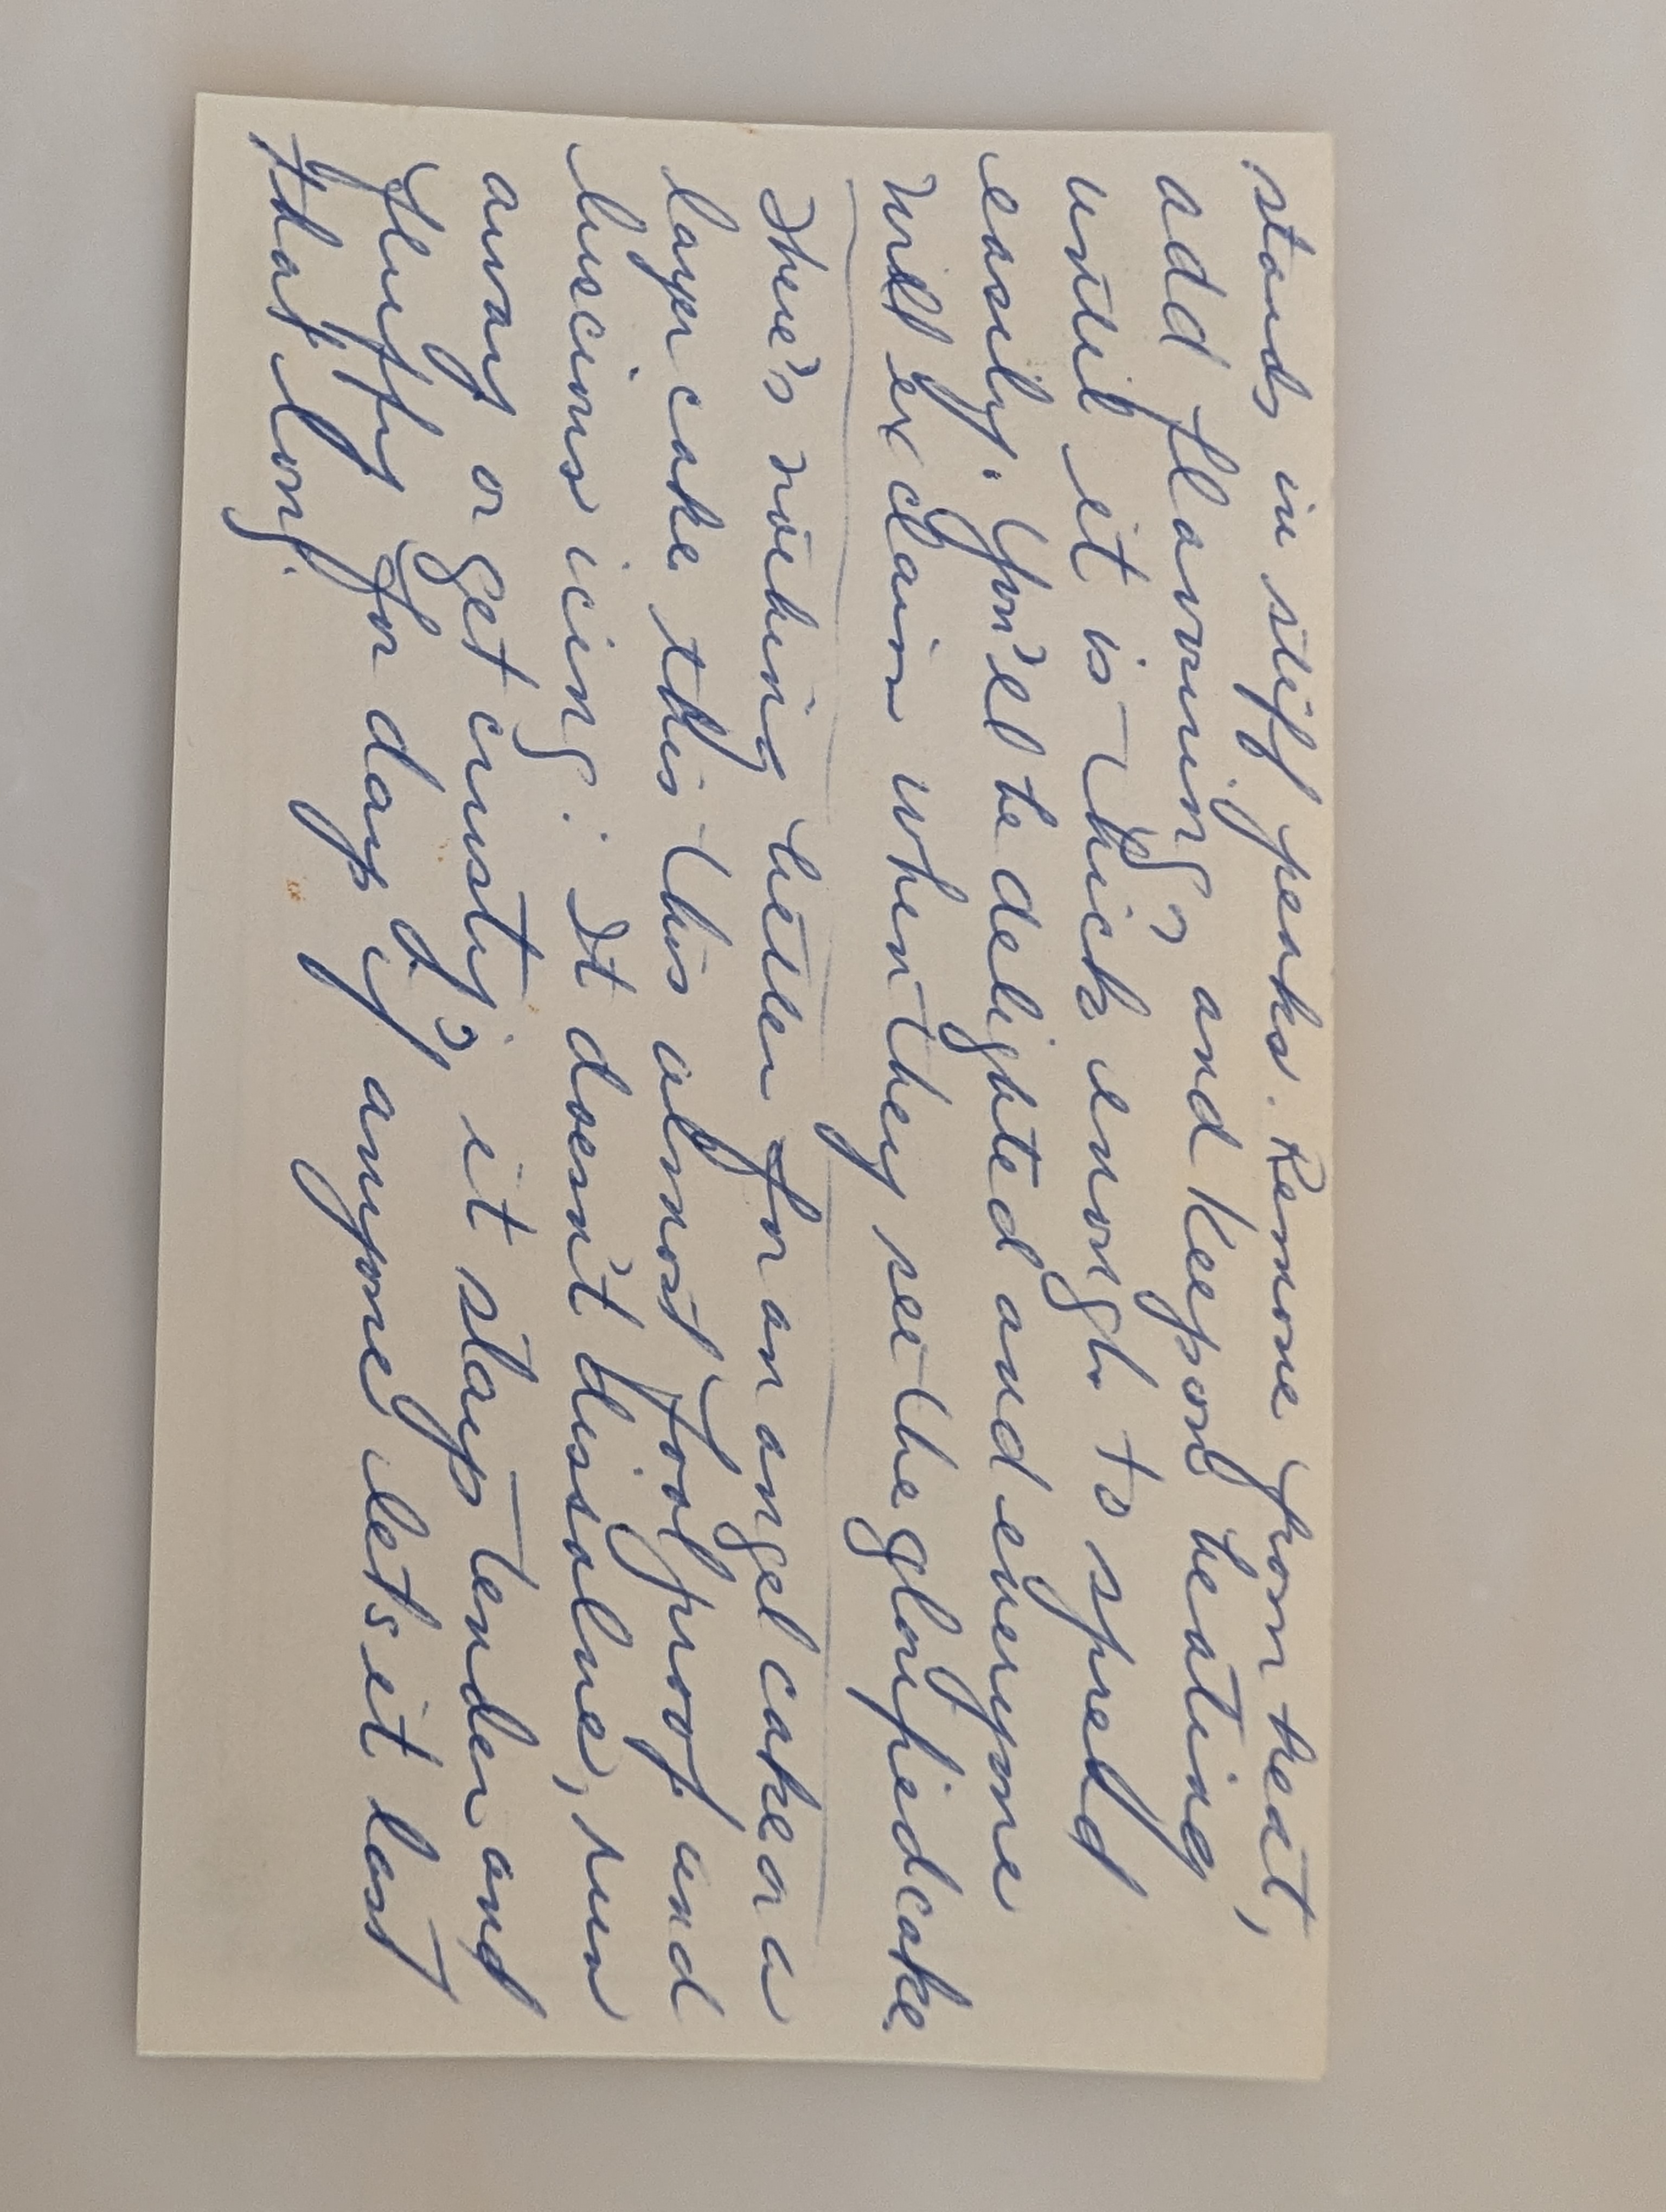 stands in stiff peaks. Remove from heat,
add flavoring, and keep on beating
until it is thick enough to spread
easily. You'll be delighted and everyone
will exclaim when they see the glorified cake
There's nothing better for an angel cake or a
layer cake than this almost foolproof and
luscious icing: It doesn't dissolve, run
away or get crusty; it stays tender and
fluffy for days if anyone lets it last
that long.